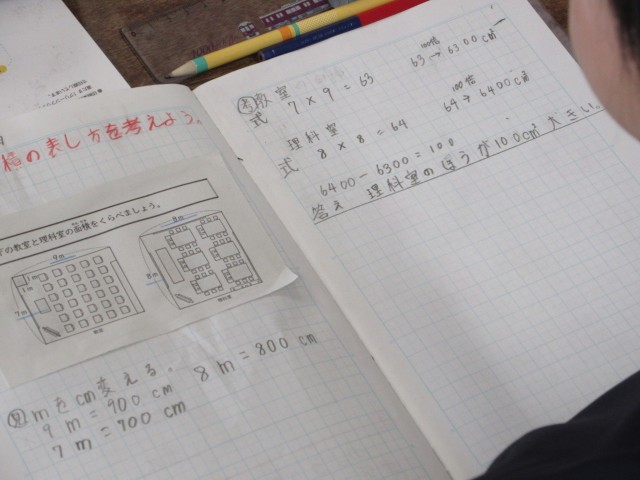 積の表し方を考えよう。
の教室と理科室の面積をくらべましょう。
9m
1m
1m
7m
教室
8m
8m
理科室
見 mをcm変える。
9m=900cm
7m=700cm
8m=800cm
考 教室
式 7×9=63
100倍
63→6300cm²
理科室
式 8×8=64
100倍
64→6400cm²
6400-6300=100
答え 理科室のほうが100cm²大きい。